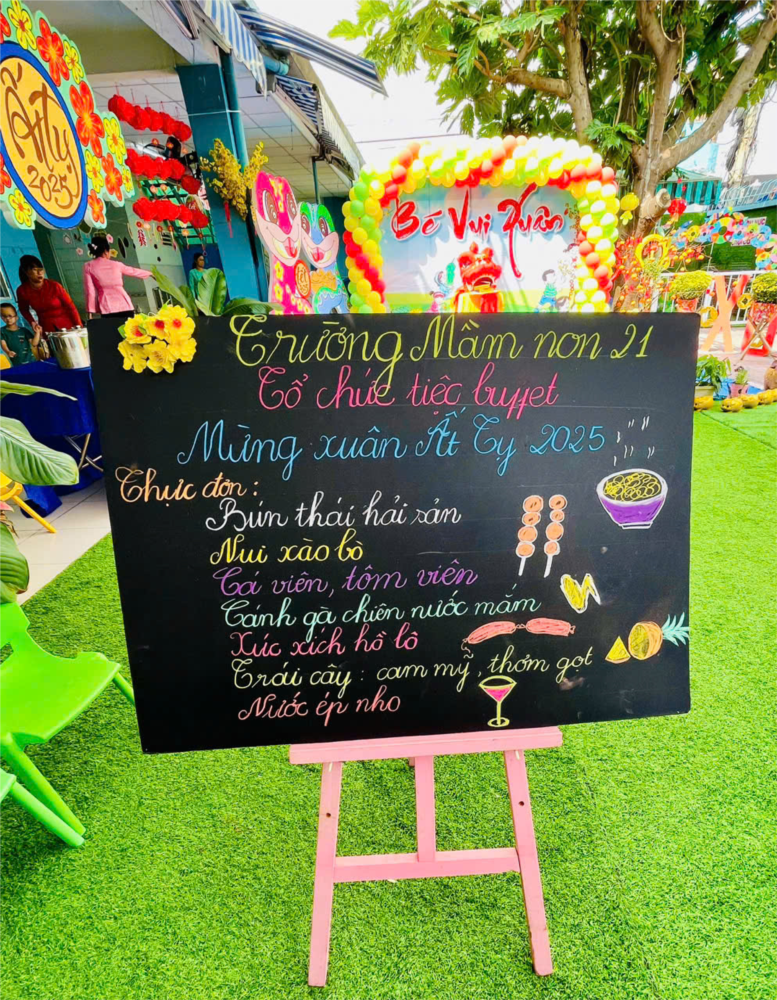 Ất Tỵ
2025
Bé Vui Xuân
Trường Mầm non 21
Tổ chức tiệc buffet
Mừng xuân Ất Tỵ 2025
Thực đơn:
Bún thái hải sản
Nui xào bò
Cá viên, tôm viên
Cánh gà chiên nước mắm
Xúc xích hồ lô
Trái cây: cam mỹ, thơm gọt
Nước ép nho